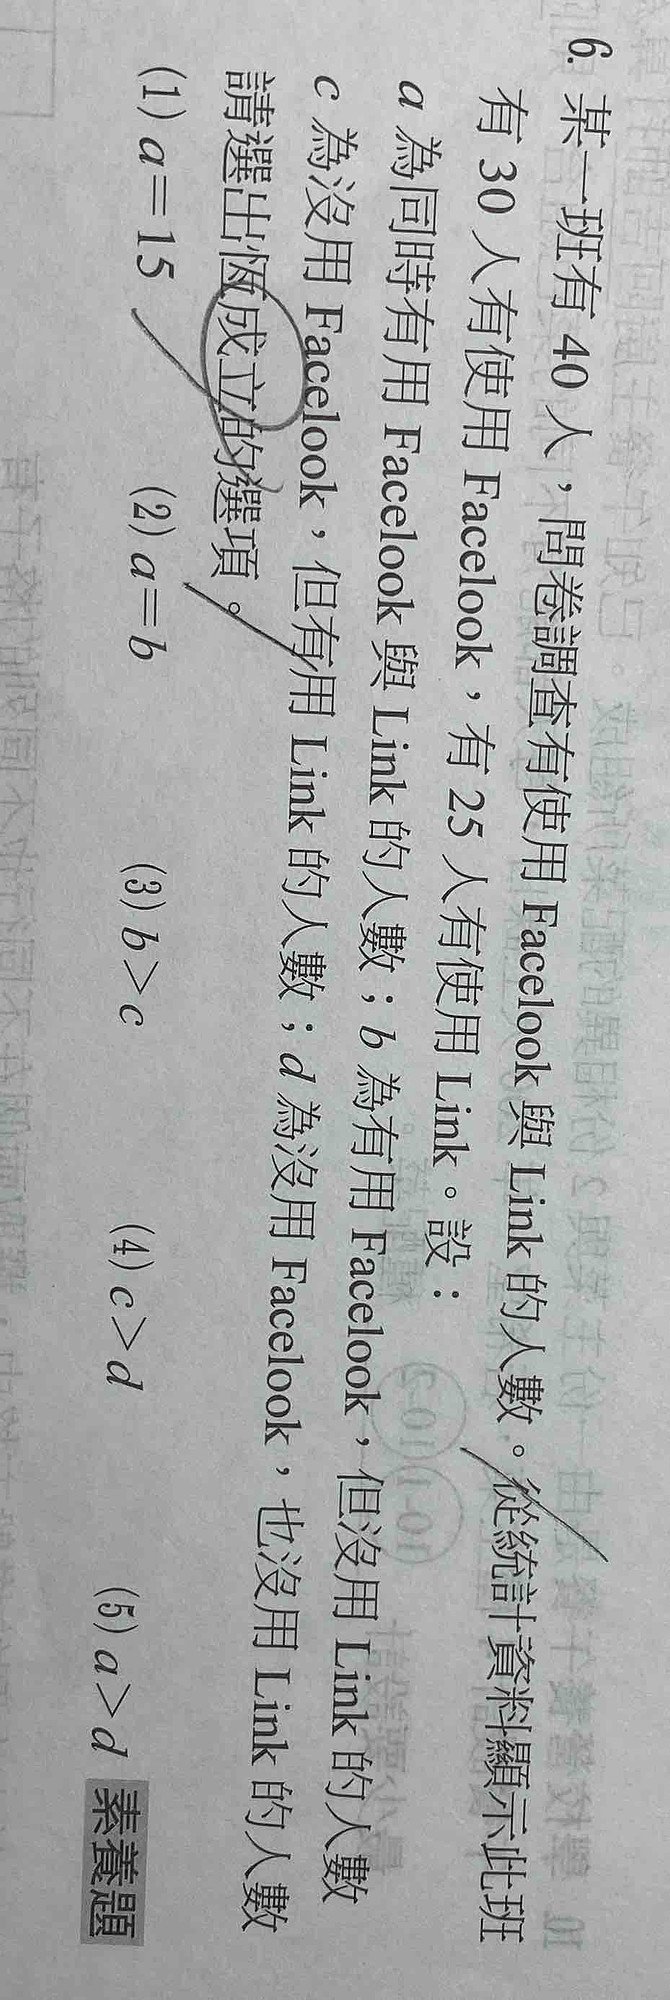 6. 某一班有 40 人，問卷調查有使用 Facelook 與 Link 的人數。從統計資料顯示此班
有 30 人有使用 Facelook，有 25 人有使用 Link。設：
a 為同時有用 Facelook 與 Link 的人數；b 為有用 Facelook，但沒用 Link 的人數
c 為沒用 Facelook，但有用 Link 的人數；d 為沒用 Facelook，也沒用 Link 的人數
請選出恆成立的選項。
(1) a=15 (2) a=b (3) b>c (4) c>d (5) a>d 素養題